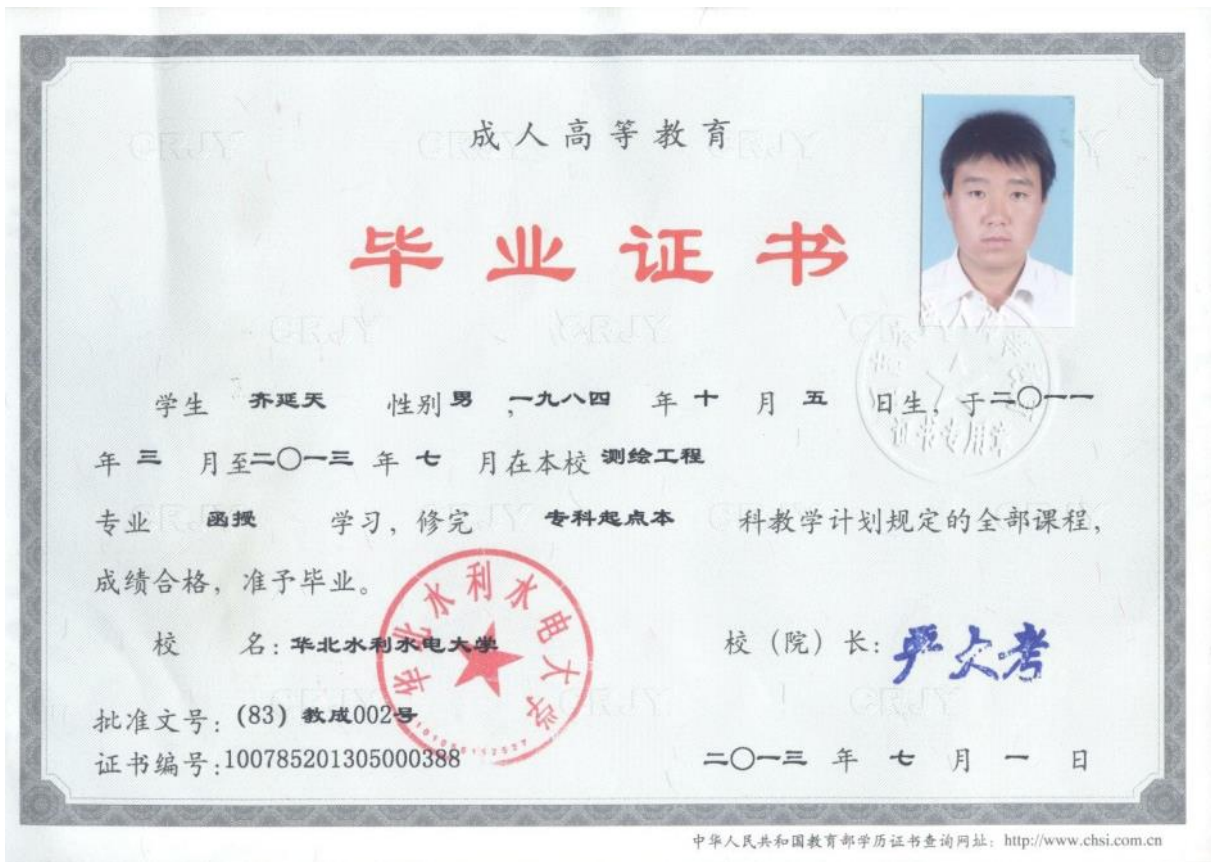 成人高等教育
毕业证书
学生 齐延天 性别 男 ,一九八四 年 十 月 五 日生, 于二〇一一
年 三 月至二〇一三 年 七 月在本校 测绘工程
专业 函授 学习, 修完 专科起点本 科教学计划规定的全部课程,
成绩合格, 准予毕业。
校 名: 华北水利水电大学
校（院）长: 严大考
批准文号: (83) 教成002号
证书编号:100785201305000388
二〇一三 年 七 月 一 日
华北水利水电大学
证书专用章
中华人民共和国教育部学历证书查询网址: http://www.chsi.com.cn